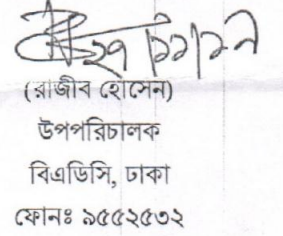 (রাজীব হোসেন)
উপপরিচালক
বিএডিসি, ঢাকা
ফোনঃ ৯৫৫২৫৩২